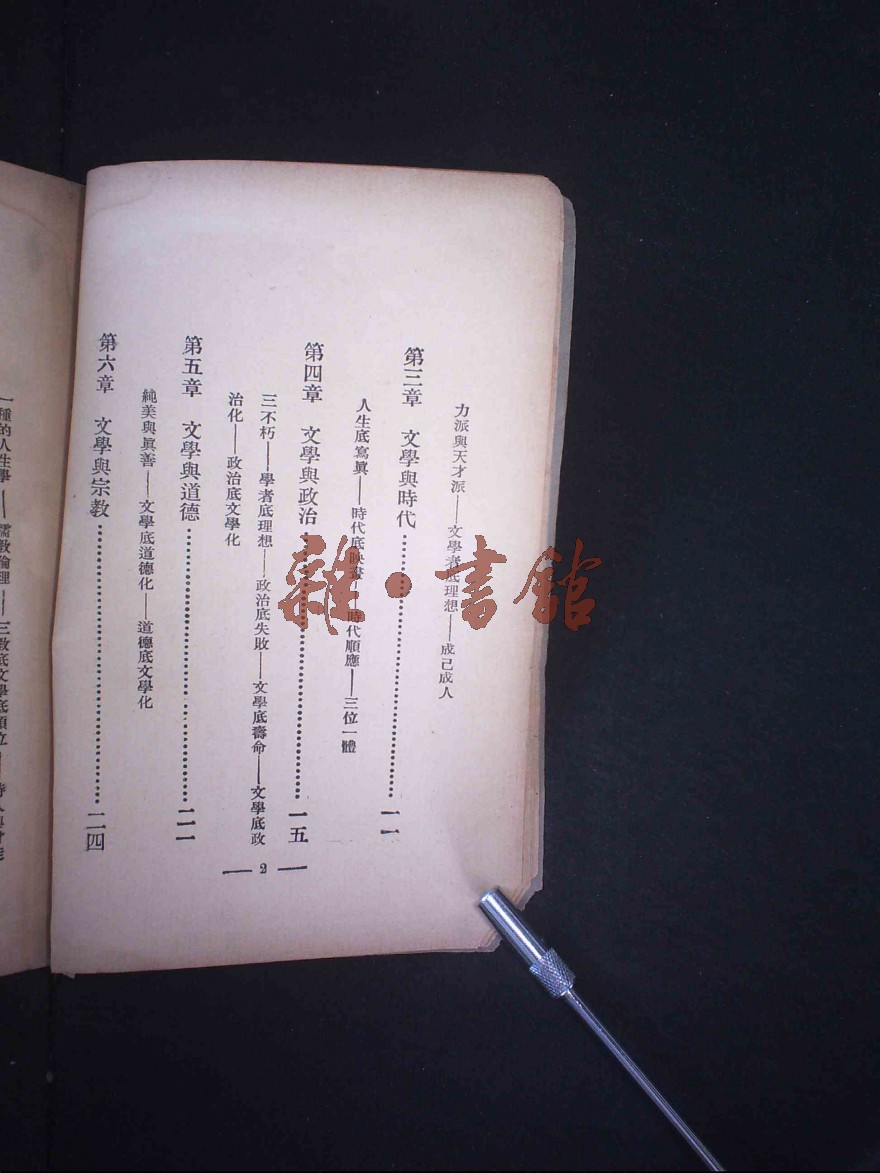 力派與天才派——文學者底理想——成己成人
第三章　文學與時代…………一一
人生底寫眞——時代底映畫——時代順應——三位一體
第四章　文學與政治…………一五
三不朽——學者底理想——政治底失敗——文學底壽命——文學底政
治化——政治底文學化
第五章　文學與道德…………二一
純美與眞善——文學底道德化——道德底文學化
第六章　文學與宗教…………二四
— 2 —
一種的人生學——儒教倫理——三教底文學底鼎立——詩人與才能
雜·書館